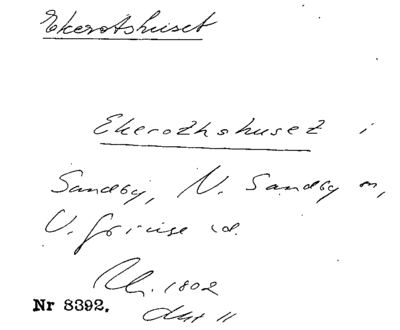 Ekerotshuset
Ekerothshuset i
Sandby, N. Sandby sn,
V. Göinge hd.
1802
Nr 8392.